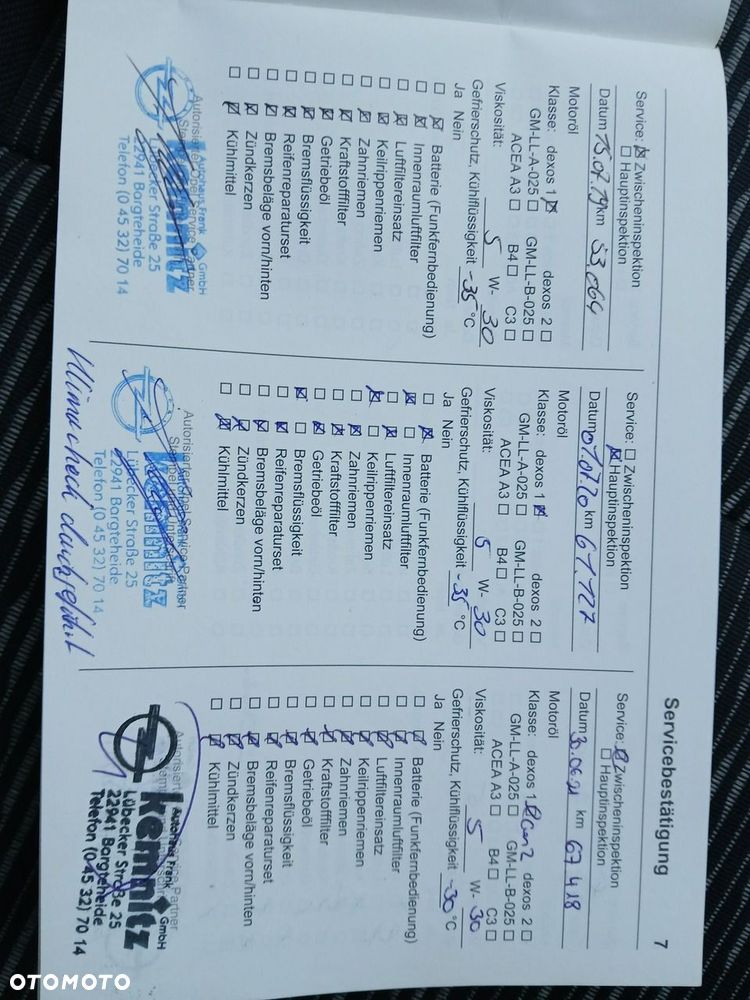 Servicebestätigung
7
Service: ☒ Zwischeninspektion
☐ Hauptinspektion
Datum 15.07.19 km 53.064
Motoröl
Klasse: dexos 1 ☒ dexos 2 ☐
GM-LL-A-025 ☐ GM-LL-B-025 ☐
ACEA A3 ☐ B4 ☐ C3 ☐
Viskosität: 5 W- 30
Gefrierschutz, Kühlflüssigkeit -35 °C
Ja Nein
☐ ☒ Batterie (Funkfernbedienung)
☐ ☒ Innenraumluftfilter
☐ ☒ Luftfiltereinsatz
☐ ☒ Keilrippenriemen
☐ ☒ Zahnriemen
☐ ☒ Kraftstofffilter
☐ ☒ Getriebeöl
☐ ☒ Bremsflüssigkeit
☐ ☒ Reifenreparaturset
☐ ☒ Bremsbeläge vorn/hinten
☐ ☒ Zündkerzen
☐ ☒ Kühlmittel
Autorisierter Opel Service Partner
Autohaus Frank GmbH
kemnitz
Lübecker Straße 25
22941 Bargteheide
Telefon (0 45 32) 70 14
Service: ☐ Zwischeninspektion
☒ Hauptinspektion
Datum 07.07.20 km 61.127
Motoröl
Klasse: dexos 1 ☒ dexos 2 ☐
GM-LL-A-025 ☐ GM-LL-B-025 ☐
ACEA A3 ☐ B4 ☐ C3 ☐
Viskosität: 5 W- 30
Gefrierschutz, Kühlflüssigkeit -35 °C
Ja Nein
☐ ☒ Batterie (Funkfernbedienung)
☒ ☐ Innenraumluftfilter
☐ ☒ Luftfiltereinsatz
☒ ☐ Keilrippenriemen
☐ ☒ Zahnriemen
☐ ☒ Kraftstofffilter
☐ ☒ Getriebeöl
☒ ☐ Bremsflüssigkeit
☐ ☒ Reifenreparaturset
☐ ☒ Bremsbeläge vorn/hinten
☐ ☒ Zündkerzen
☐ ☒ Kühlmittel
Lübecker Straße 25
22941 Bargteheide
Telefon (0 45 32) 70 14
Klimacheck durchgeführt
Service: ☒ Zwischeninspektion
☐ Hauptinspektion
Datum 30.06.21 km 67418
Motoröl
Klasse: dexos 1 dexos 2 ☐
GM-LL-A-025 ☐ GM-LL-B-025 ☐
ACEA A3 ☐ B4 ☐ C3 ☐
Viskosität: 5 W- 30
Gefrierschutz, Kühlflüssigkeit -30 °C
Ja Nein
☐ ☒ Batterie (Funkfernbedienung)
☐ ☒ Innenraumluftfilter
☐ ☒ Luftfiltereinsatz
☐ ☒ Keilrippenriemen
☐ ☒ Zahnriemen
☐ ☒ Kraftstofffilter
☐ ☒ Getriebeöl
☐ ☒ Bremsflüssigkeit
☐ ☒ Reifenreparaturset
☐ ☒ Bremsbeläge vorn/hinten
☐ ☒ Zündkerzen
☐ ☒ Kühlmittel
Autohaus Frank GmbH
kemnitz
Lübecker Straße 25
22941 Bargteheide
Telefon (0 45 32) 70 14
OTOMOTO